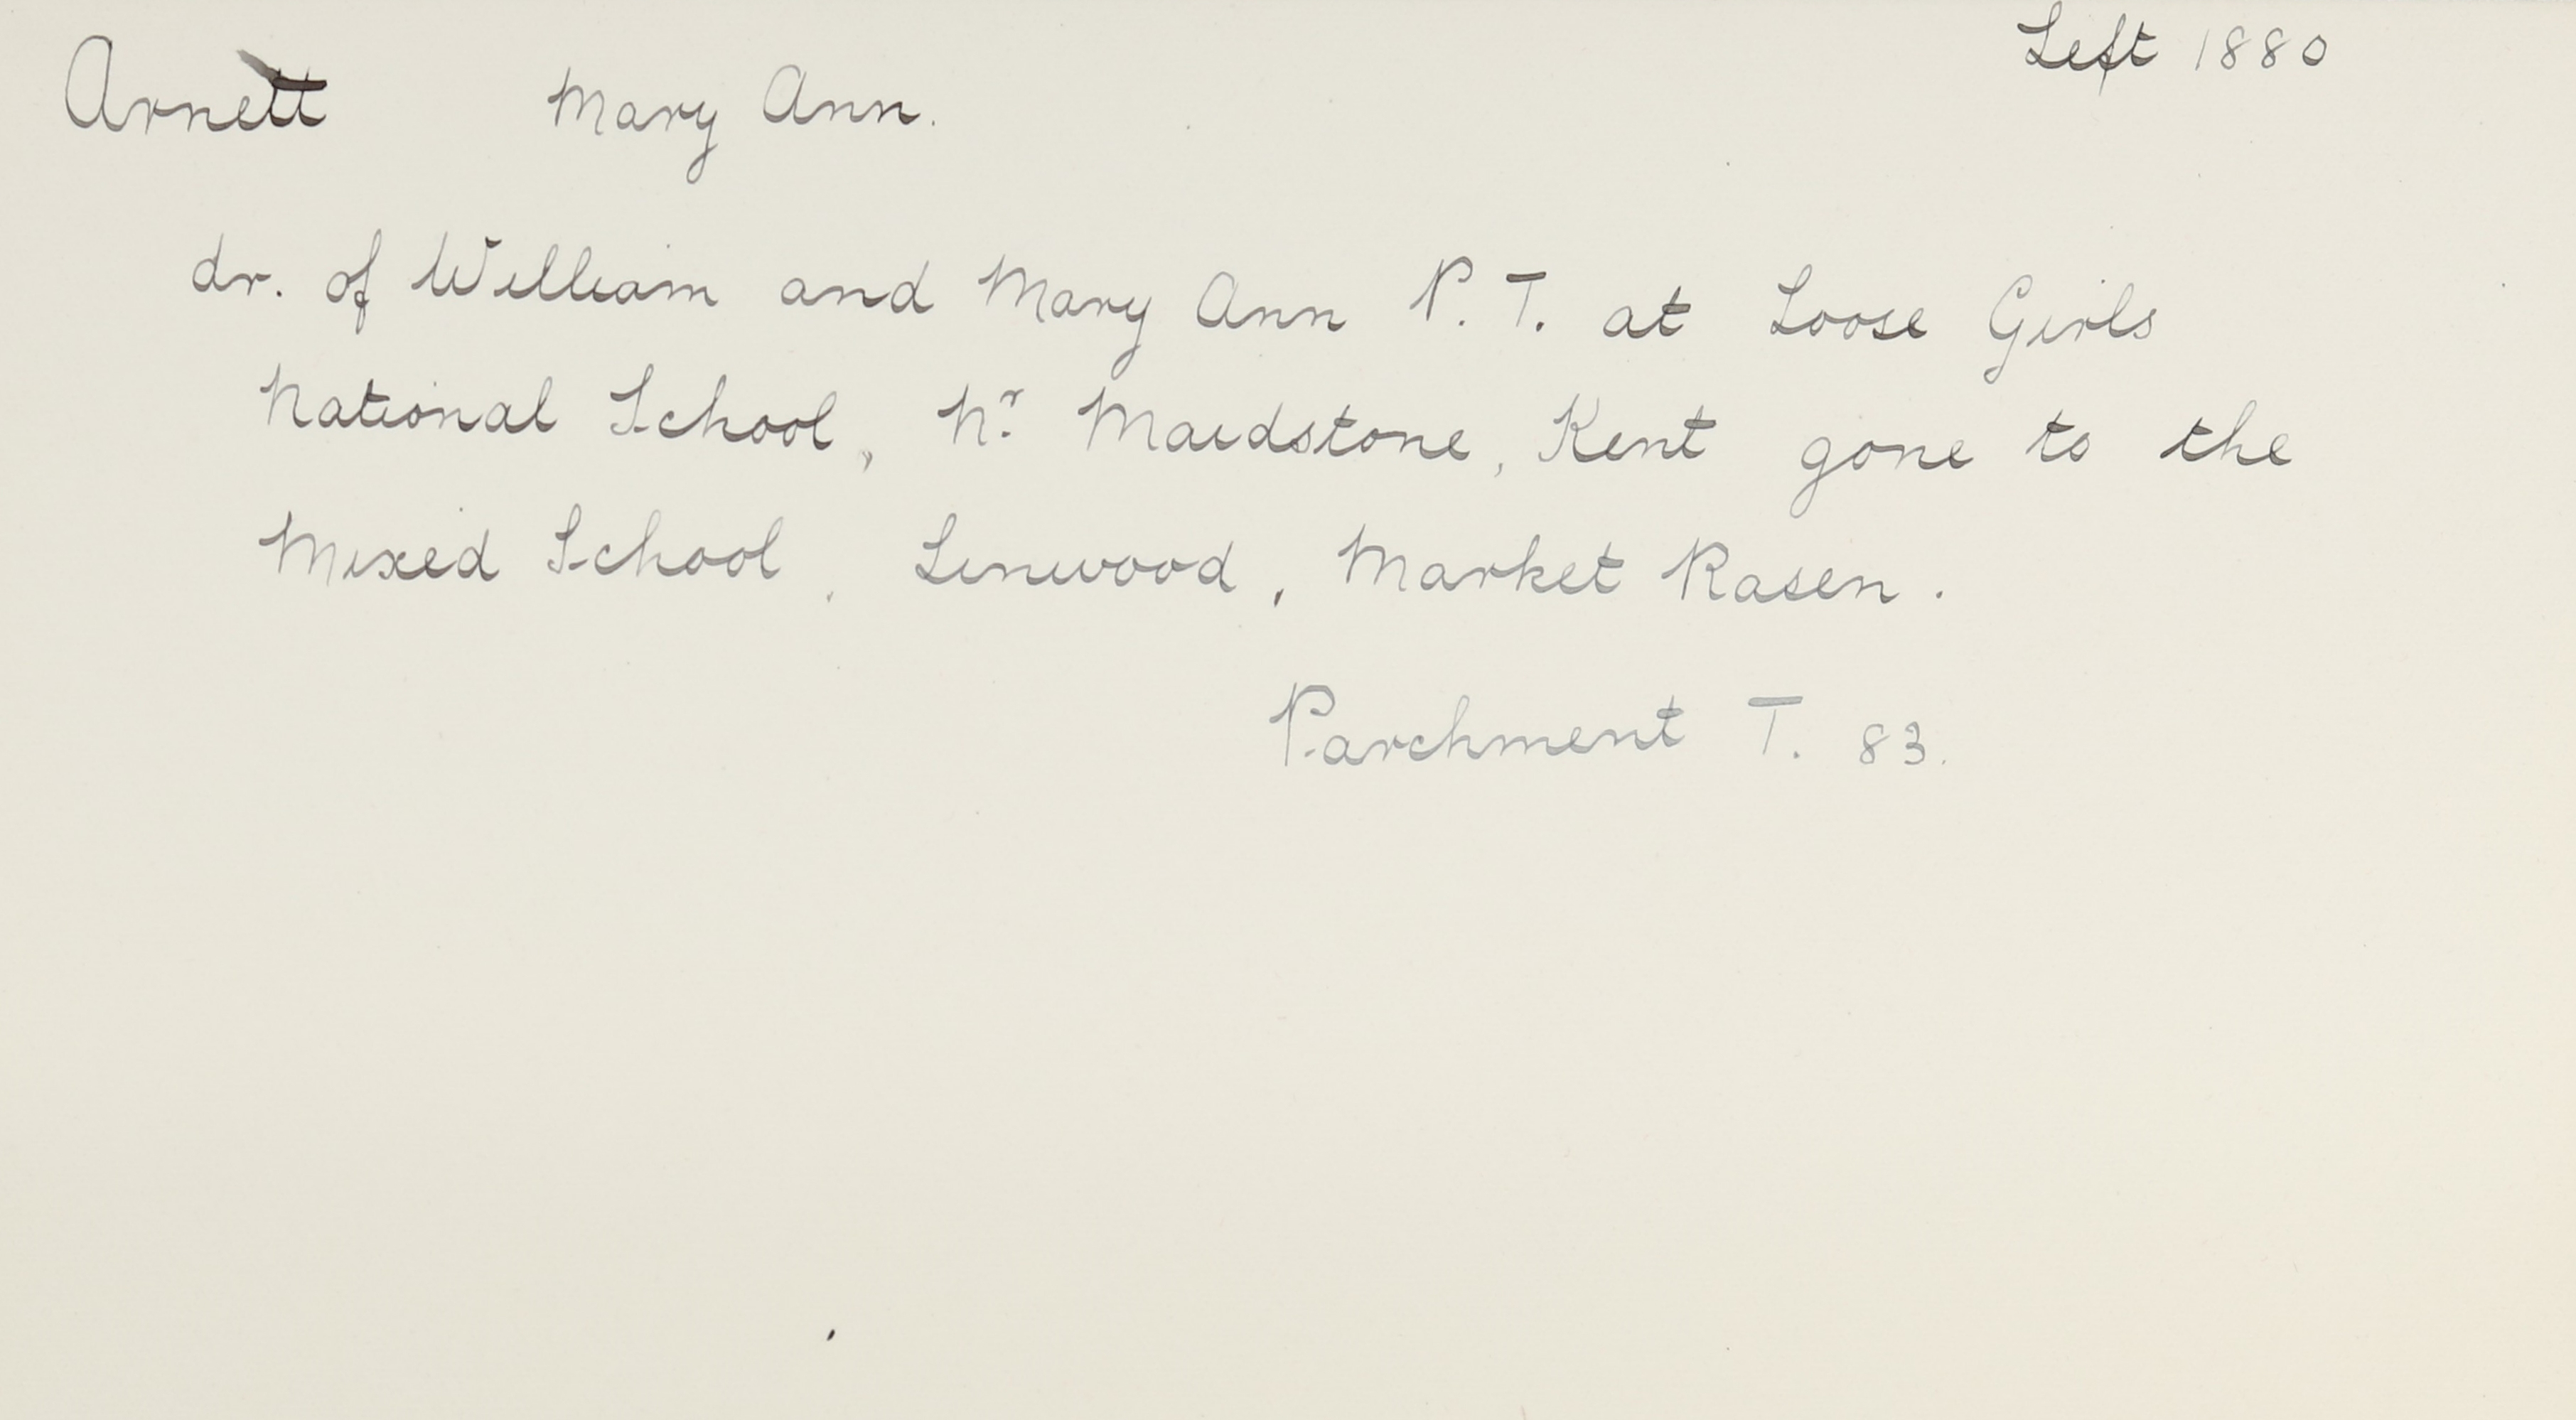 Left 1880
Arnett Mary Ann.
dr. of William and Mary Ann P. T. at Loose Girls
National School, Nr. Maidstone, Kent gone to the
Mixed School, Linwood, Market Rasen.
Parchment T. 83.